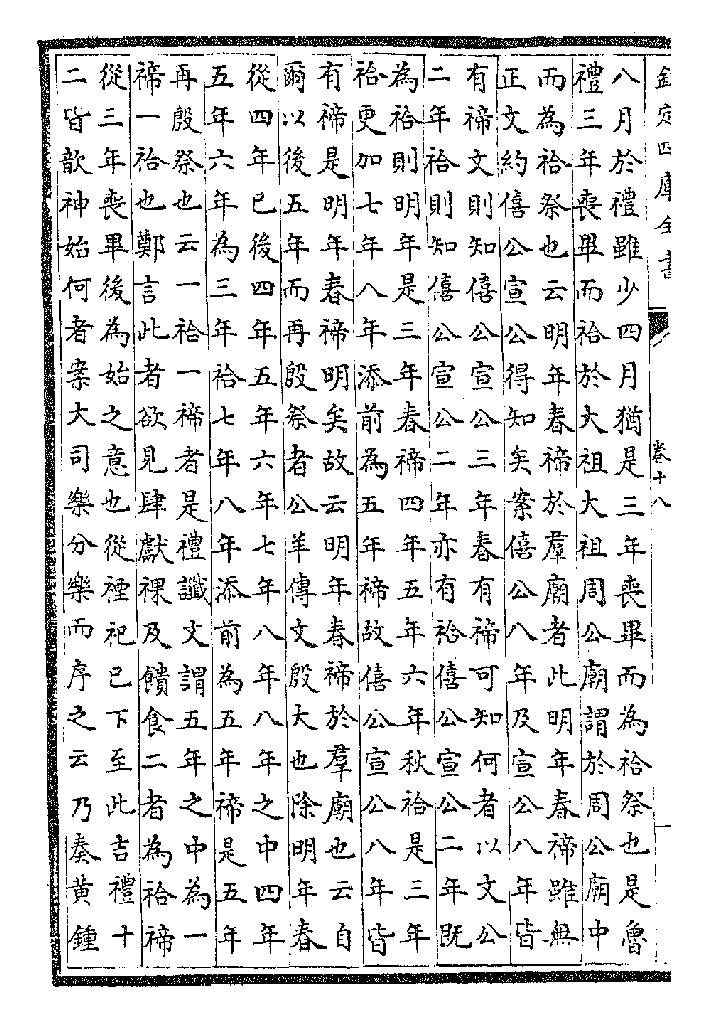 欽定四庫全書
卷十八
八月於禮雖少四月猶是三年喪畢而為祫祭也是魯
禮三年喪畢而祫於大祖大祖周公廟謂於周公廟中
而為祫祭也云明年春禘於羣廟者此明年春禘雖無
正文約僖公宣公得知矣案僖公八年及宣公八年皆
有禘文則知僖公宣公三年春有禘可知何者以文公
二年祫則知僖公宣公二年亦有祫僖公宣公二年既
為祫則明年是三年春禘四年五年六年秋祫是三年
祫更加七年八年添前為五年禘故僖公宣公八年皆
有禘是明年春禘明矣故云明年春禘於羣廟也云自
爾以後五年而再殷祭者公羊傳文殷大也除明年春
從四年已後四年五年六年七年八年八年之中四年
五年六年為三年祫七年八年添前為五年禘是五年
再殷祭也云一祫一禘者是禮讖文謂五年之中為一
禘一祫也鄭言此者欲見肆獻祼及饋食二者為祫禘
從三年喪畢後為始之意也從禋祀已下至此吉禮十
二皆歆神始何者案大司樂分樂而序之云乃奏黃鍾